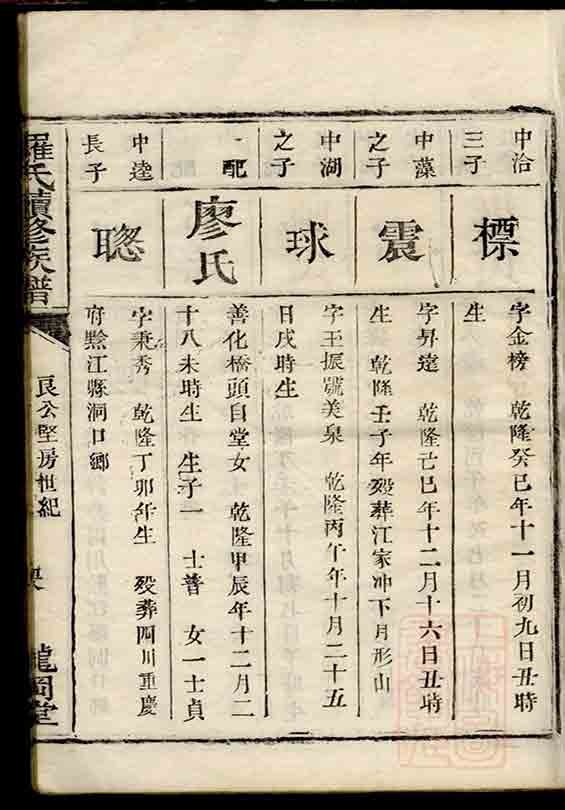 中洽
三子
標
字金榜　乾隆癸巳年十一月初九日丑時
生
中藻
之子
震
字昇遠　乾隆亡巳年十二月十六日丑時
生　乾隆壬子年歿葬江家冲下月形山
中湖
之子
球
字玉振號美泉　乾隆丙午年十月二十五
日戌時生
一配
廖氏
善化橋頭自堂女　乾隆甲辰年十二月二
十八未時生　生子一　士普　女一士貞
中逵
長子
聰
字秉秀　乾隆丁卯年生　歿葬四川重慶
府黔江縣洞口鄉
羅氏續修族譜
良公堅房世紀
龍岡堂